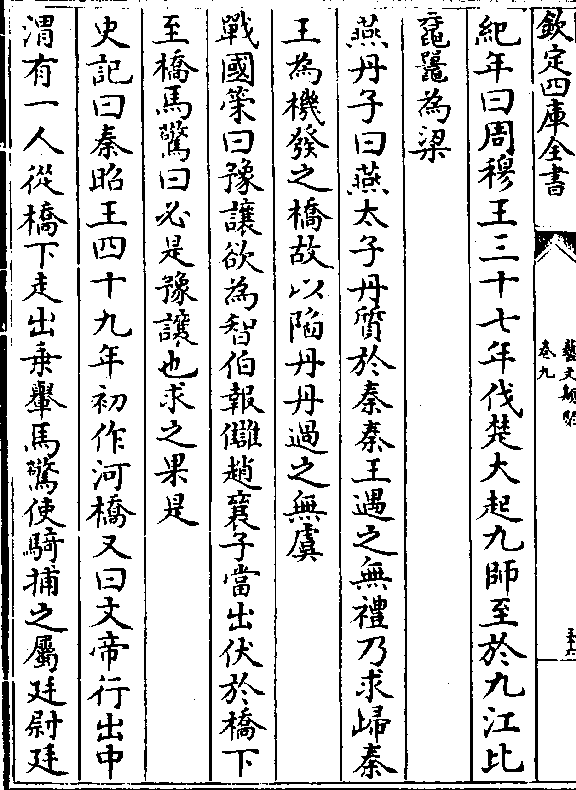 欽定四庫全書
藝文類聚
卷九
紀年曰周穆王三十七年伐楚大起九師至於九江比
黿鼉為梁
燕丹子曰燕太子丹質於秦秦王遇之無禮乃求歸秦
王為機發之橋故以陷丹丹過之無虞
戰國策曰豫讓欲為智伯報讎趙襄子當出伏於橋下
至橋馬驚曰必是豫讓也求之果是
史記曰秦昭王四十九年初作河橋又曰文帝行出中
渭有一人從橋下走出乗轝馬驚使騎捕之屬廷尉廷